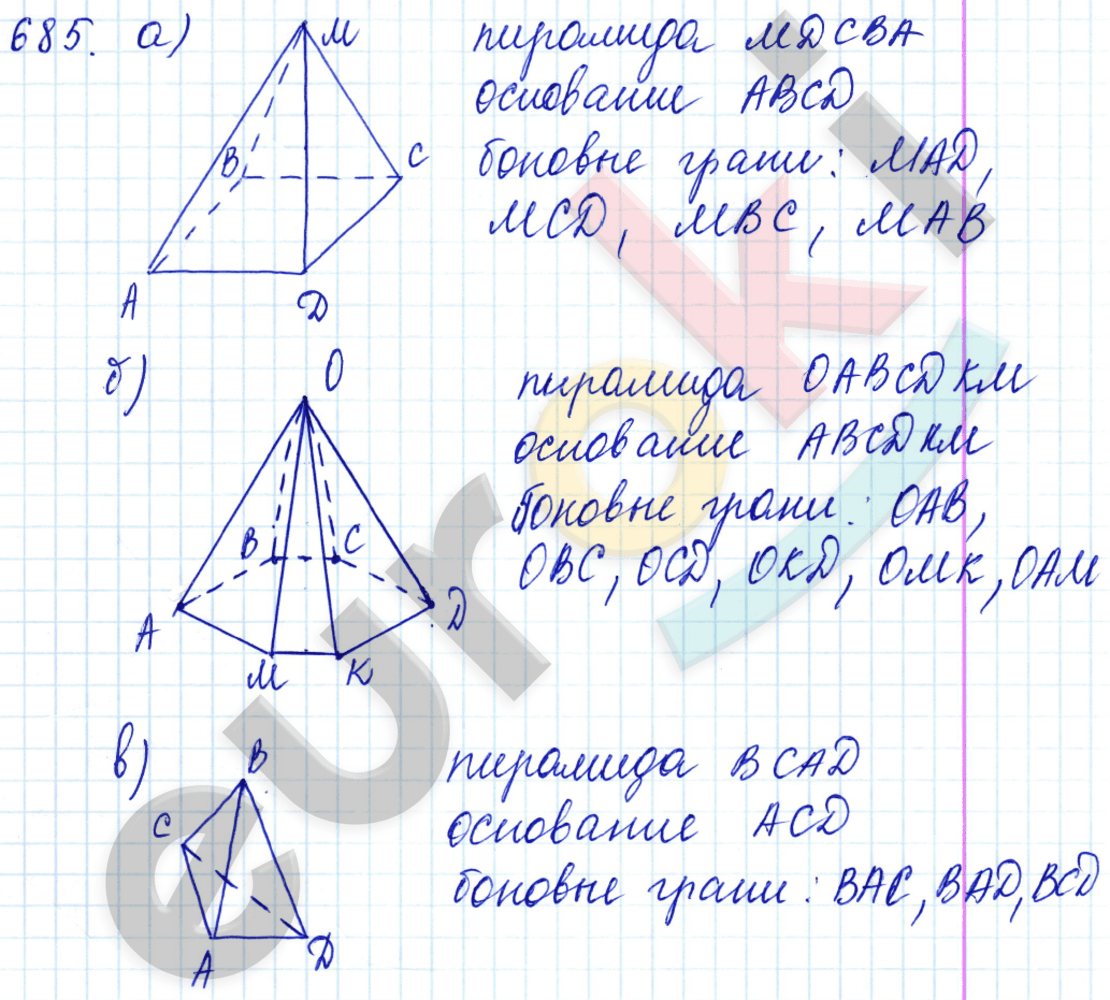 685. а)
M
B
C
A
D
пирамида MDCBA
основание ABCD
боковые грани: MAD,
MCD, MBC, MAB
б)
O
B
C
A
D
M
K
пирамида OABCDKM
основание ABCDKM
боковые грани: OAB,
OBC, OCD, OKD, OMK, OAM
в)
B
C
A
D
пирамида BCAD
основание ACD
боковые грани: BAC, BAD, BCD
euroki